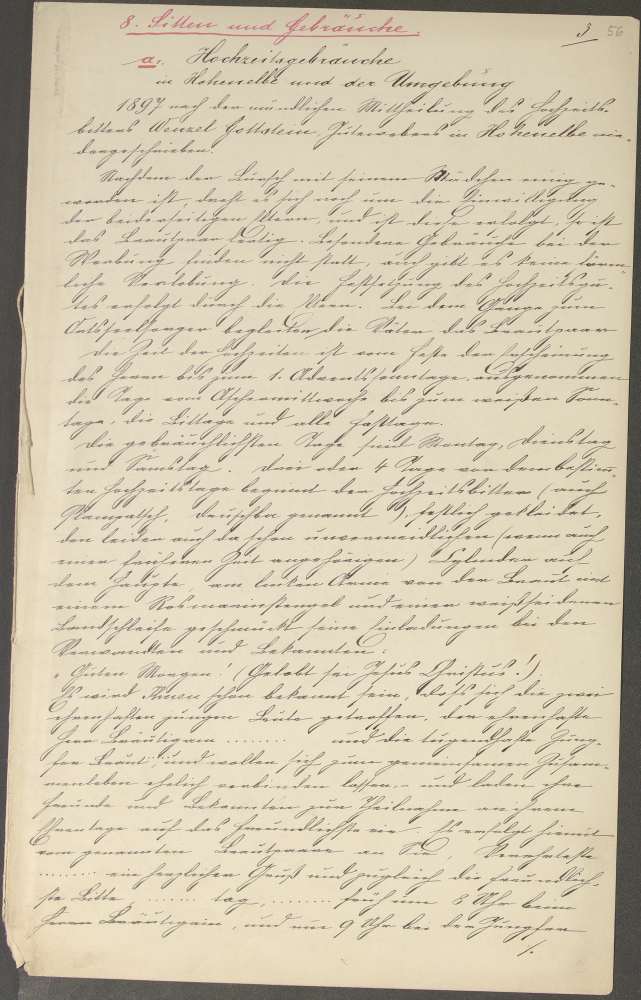 8. Sitten und Gebräuche.
3 56
a. Hochzeitsgebräuche
in Hohenelbe und der Umgebung
1897 nach der mündlichen Mittheilung des Hochzeits-
bitters Wenzel Gottstein, Jutewebers in Hohenelbe nie-
dergeschrieben.
Nachdem der Bursch mit seinem Mädchen einig ge-
worden ist, dreht es sich noch um die Einwilligung
der beiderseitigen Eltern, und ist diese erfolgt, so ist
das Brautpaar fertig. Besondere Gebräuche bei der
Werbung finden nicht statt, auch gibt es keine förm-
liche Verlobung. Die Festsetzung des Heiratsgu-
tes erfolgt durch die Eltern. Bei dem Gange zum
Ortsseelsorger begleiten die Väter das Brautpaar
Die Zeit der Hochzeiten ist vom Feste der Erscheinung
des Herrn bis zum 1. Adventsonntage, ausgenommen
die Tage vom Aschermittwoch bis zum weißen Sonn-
tage, die Bittage und alle Fasttage.
Die gebräuchlichsten Tage sind Montag, Dienstag
und Samstag. Drei oder 4 Tage vor dem bestimm-
ten Hochzeitstage beginnt der Hochzeitsbitter (auch
Plampatsch, genannt), festlich gekleidet,
den leider auch da schon unvermeidlichen (wenn auch
einer früheren Zeit angehörigen) Cylinder auf
dem Haupte, am linken Arme von der Braut mit
einem Rosmarinstengel und einer weißseidenen
Bandschleife geschmückt seine Einladungen bei den
Verwandten und Bekannten:
„Guten Morgen! (Gelobt sei Jesus Christus!)
Es wird Ihnen schon bekannt sein, daß sich die zwei
ehrenhaften jungen Leute getroffen, der ehrenhafte
Herr Bräutigam ........ und die tugendhafte Jung-
fer Braut, und wollen sich zum gemeinsamen Zusam-
menleben ehelich verbinden lassen, und laden ihre
Freunde und Bekannten zur Theilnahme an ihrem
Ehrentage auf das Freundlichste ein. Es erfolgt hiemit
vom genannten Brautpaare an Sie, Verehrteste
........ ein herzlicher Gruß und zugleich die freundlich-
ste Bitte ........ tag, ........ früh um 8 Uhr beim
Herrn Bräutigam, und um 9 Uhr bei der Jungfer
/.